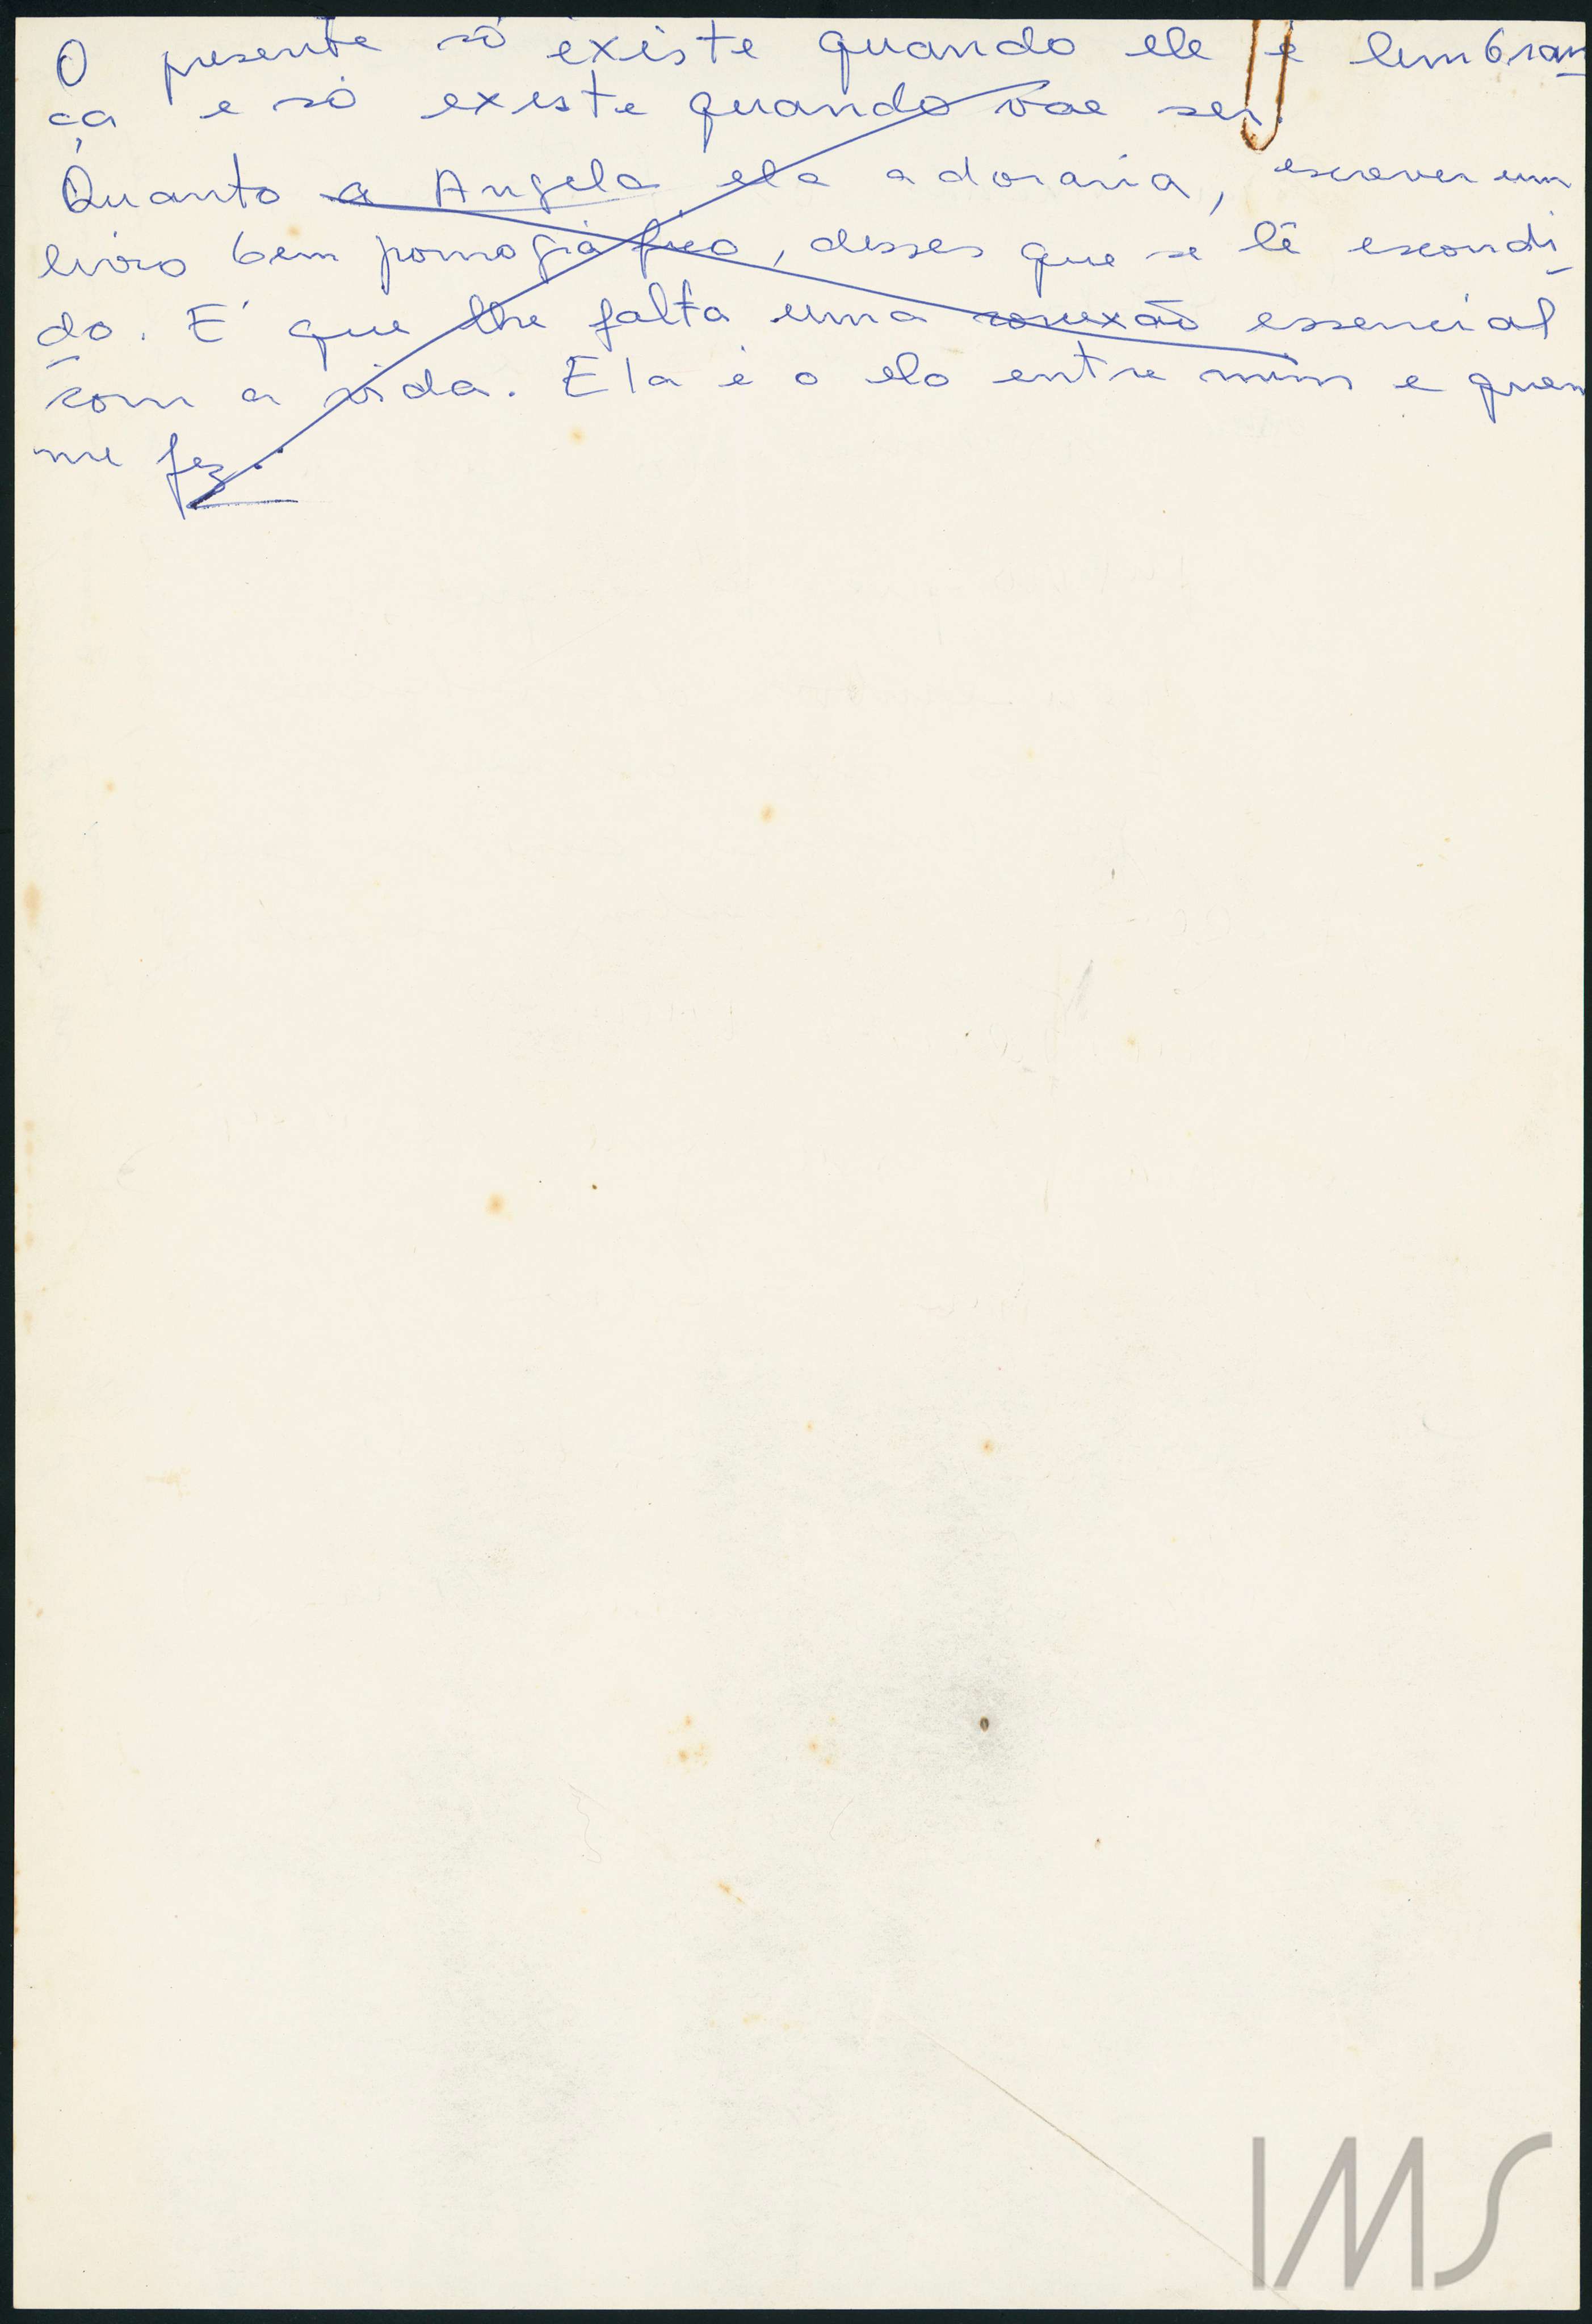 O presente só existe quando ele é lembran
ça e só existe quando vae ser.
Quanto a Angela ela adoraria, escrever um
livro bem pornográfico, desses que se lê escondi
do. É que lhe falta uma conexão essencial
com a vida. Ela é o elo entre mim e quem
me fez.
IMS